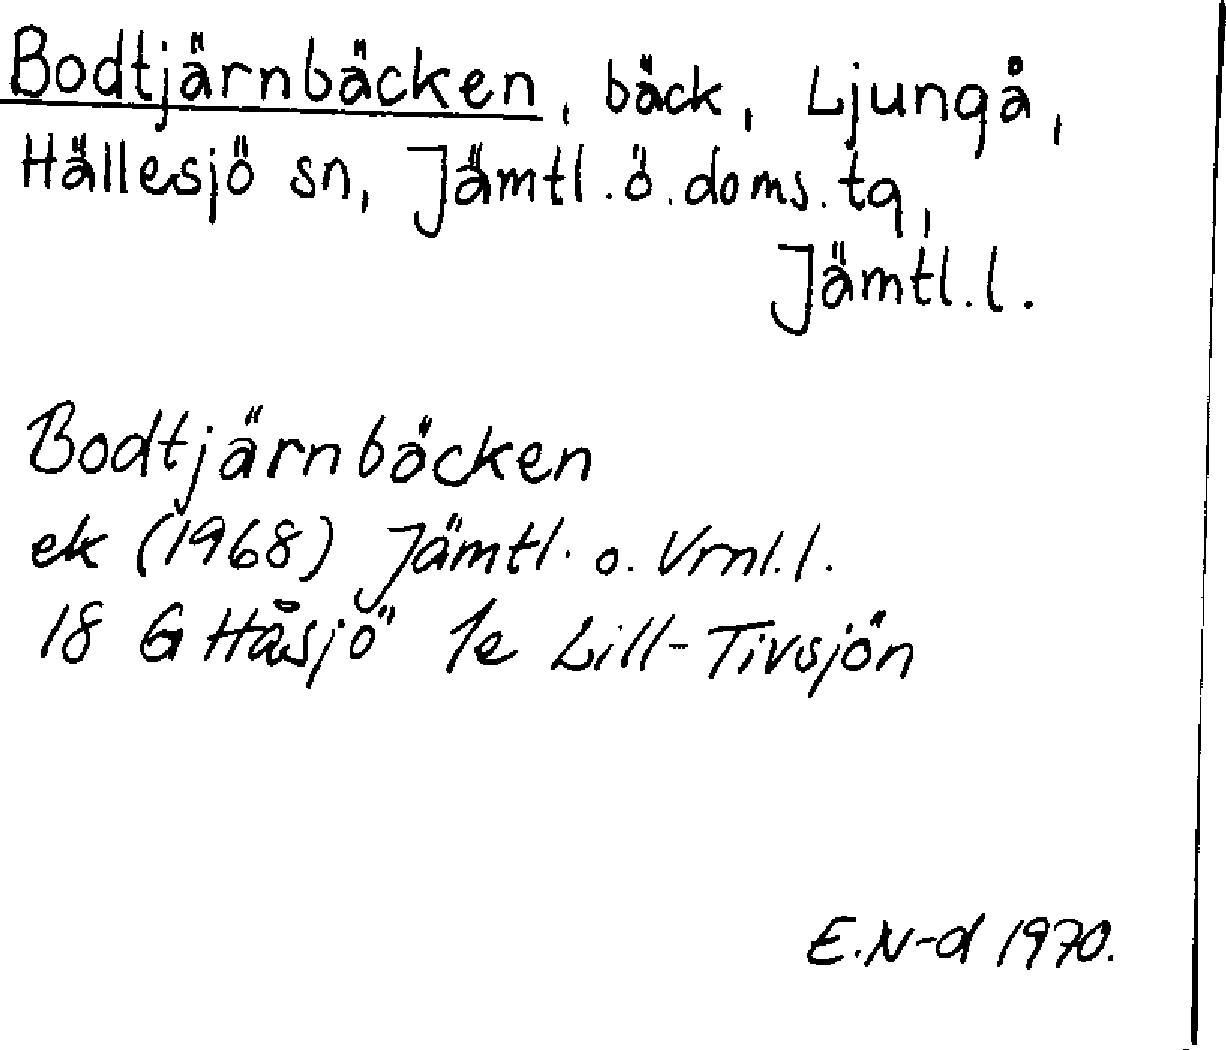 Bodtjärnbäcken, bäck, Ljungå,
Hällesjö sn, Jämtl. ö. doms. tg,
Jämtl. l.
Bodtjärnbäcken
ek (1968) Jämtl. o. Vrnl. l.
18 G Håsjö 1e Lill-Tivsjön
E.N-d 1970.